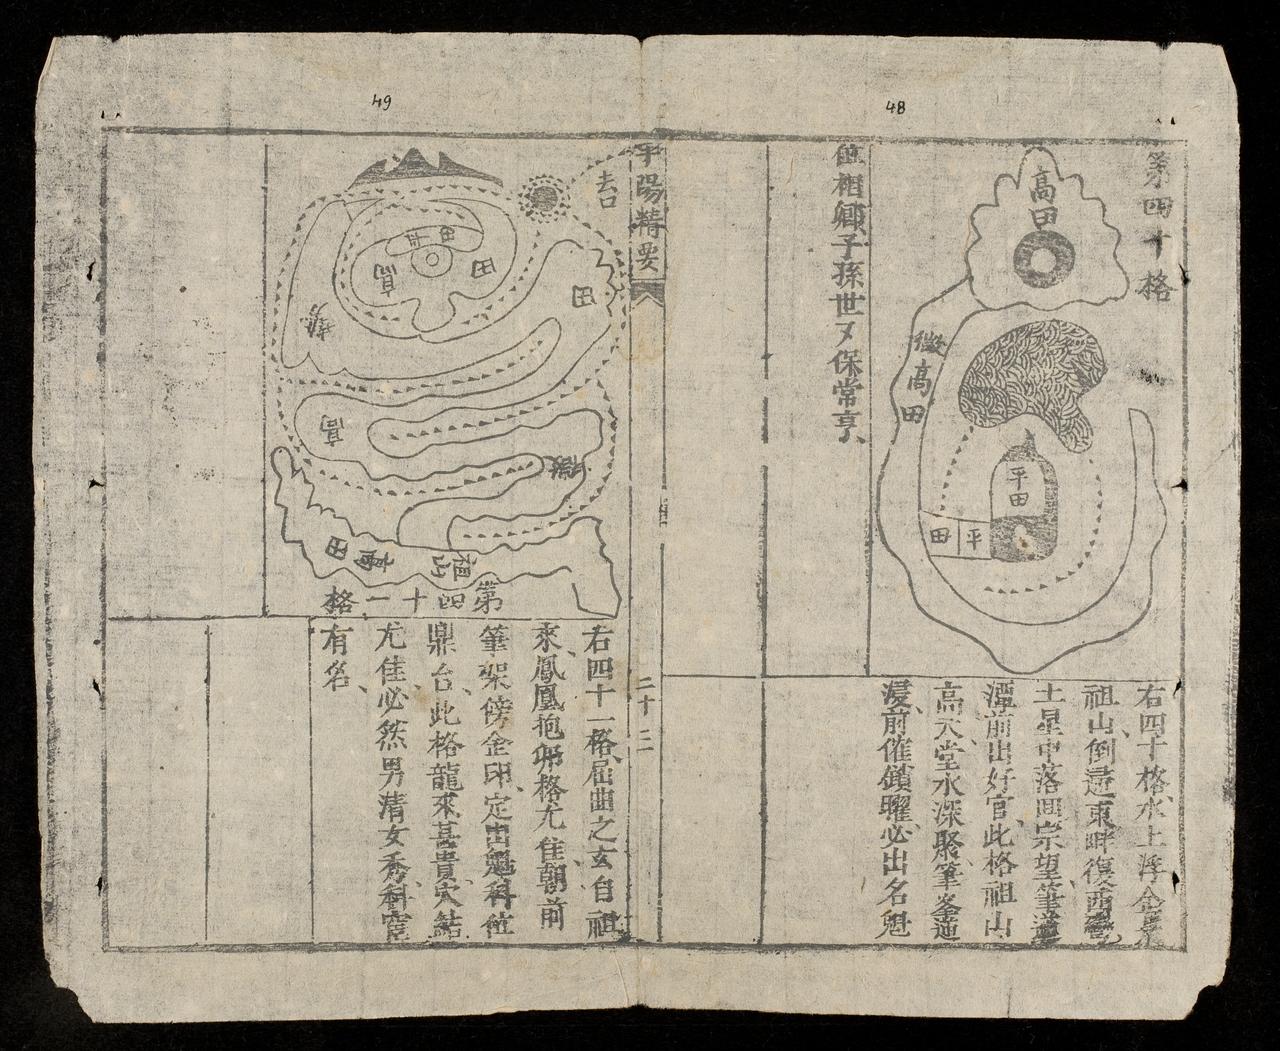 48
第四十格
高田
微高田
平田
平田
右四十格、水上浮金是
祖山倒邉東畔復西
土星中落回宗望筆
潭前出好官、此格祖山
高大、堂水深聚、筆峯
浸前、催鑽曜、必出名魁
位相卿、子孫世〻保常亨、
平陽精要
二十三
49
去
平田
田
高
田
朝
高
微
祖山
高田
第四十一格
右四十一格、屈曲之玄自祖
來、鳳凰抱卵格尤佳、朝前
筆架傍金印、定出魁科位
鼎台、此格龍來甚貴、穴結
尤佳、必然男清女秀、科宦
有名、